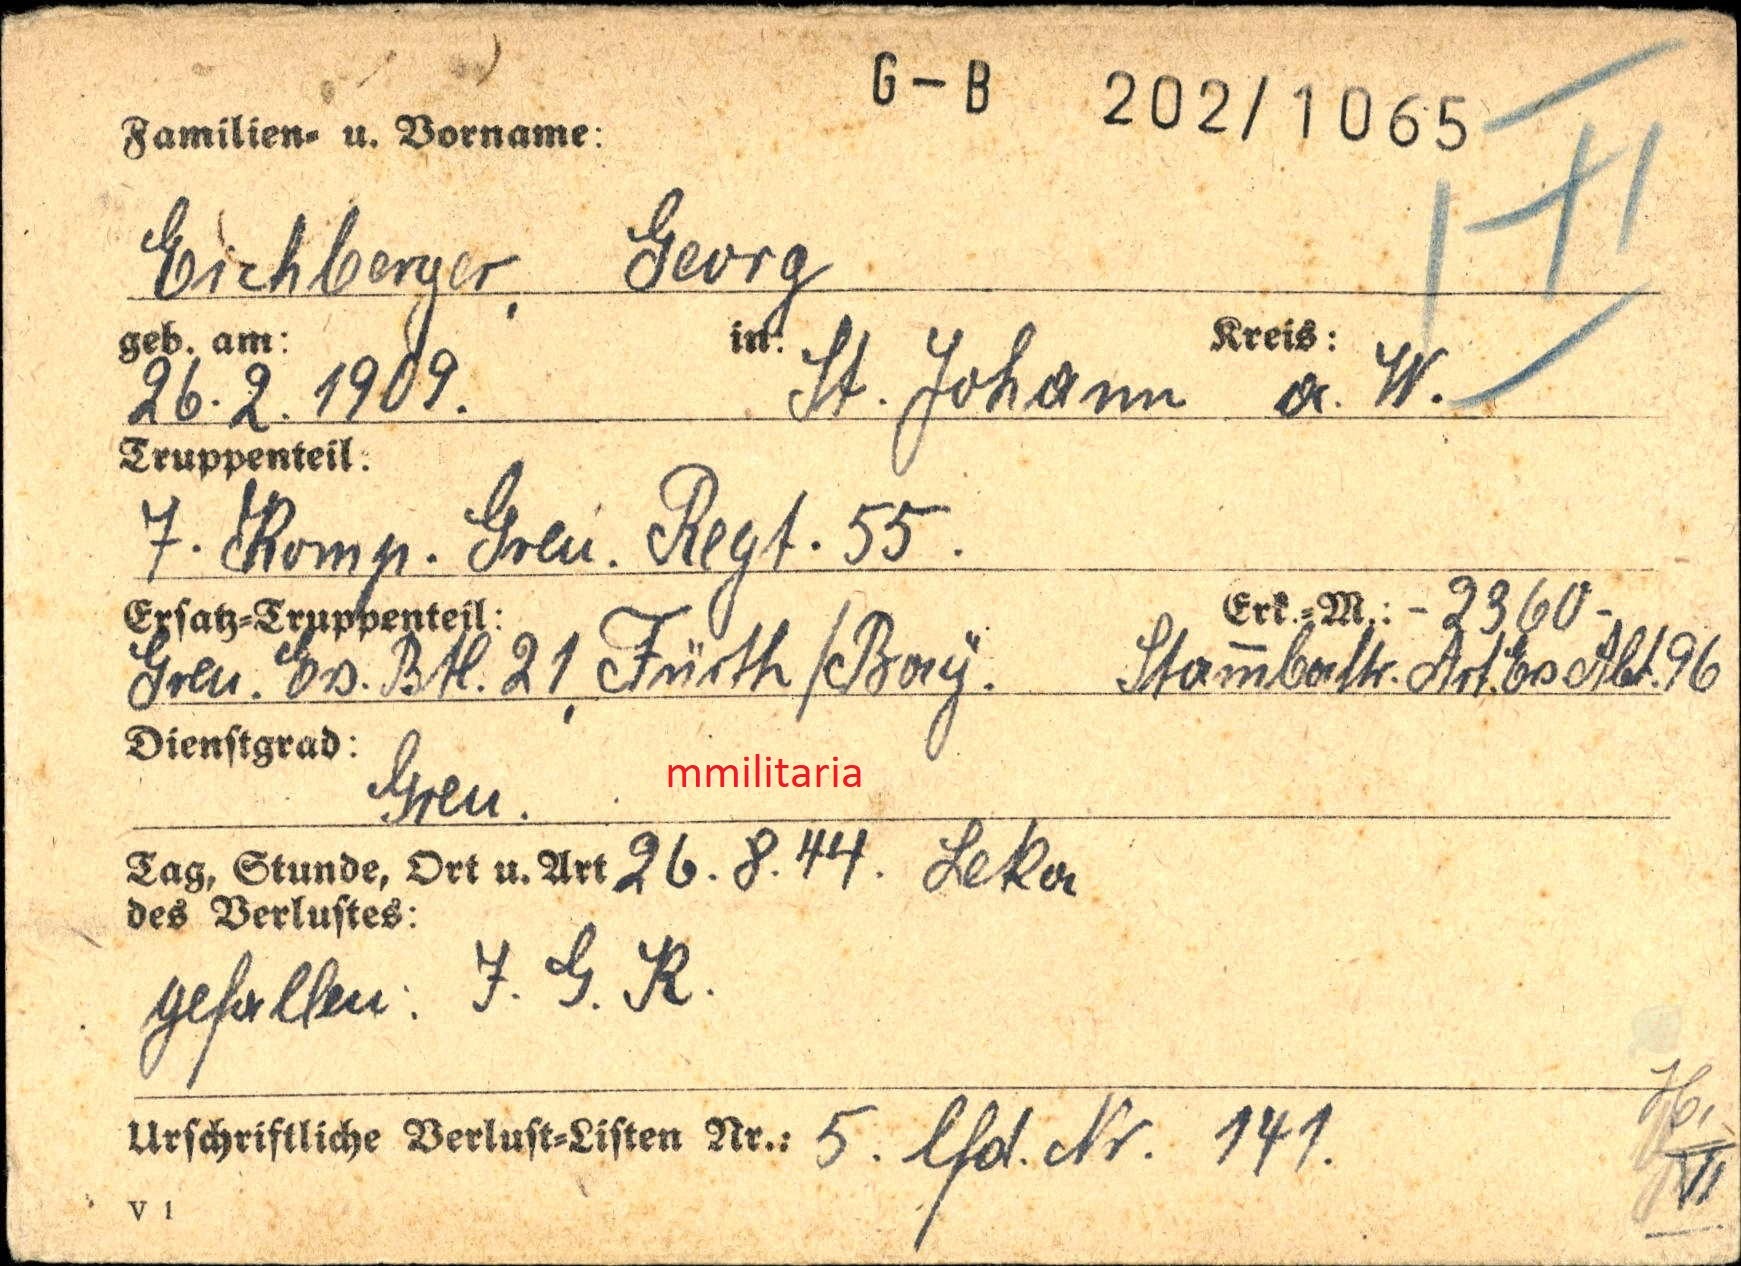 G-B 202/1065
Familien- u. Vorname:
Eichberger, Georg
geb. am: in: Kreis:
26.2.1909. St. Johann a. W.
Truppenteil:
7. Komp. Gren. Regt. 55.
Ersatz-Truppenteil: Erk.-M.: -2360-
Gren. Ers. Btl. 21, Fürth/Bay. Stammbattr. Art. Ers Abt. 96
Dienstgrad:
Gren.
mmilitaria
Tag, Stunde, Ort u. Art 26.8.44. Leka
des Verlustes:
gefallen: J. G. K.
Urschriftliche Verlust-Listen Nr.: 5. lfd. Nr. 141.
V 1